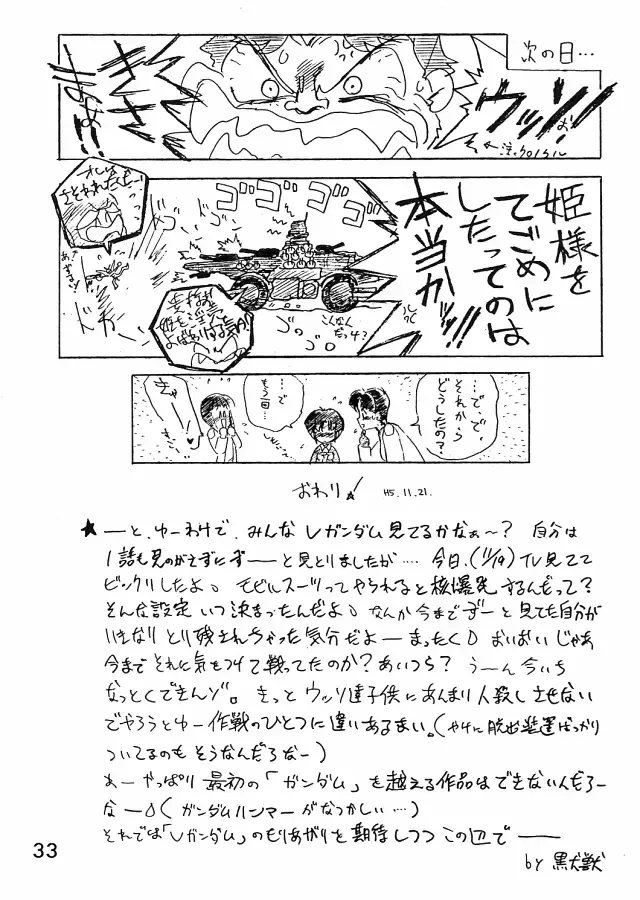 次の日…
ウッソ!!
おぉ
←注、クロノクル
きさ
まぁ
ぁ!!
姫様を
てごめに
したってのは
本当か!!
ゴゴゴゴ
オレは
さそわれたんだー!
あ、
ドカ
ゴロゴロ
こんなん
だっけ?
…で、で、
それから
どうしたの?
…で
もう一回…
きゃー!
♥
おわり☆!
H5.11.21.
★ーと、ゆーわけで、みんな Vガンダム見てるかなぁ〜? 自分は
1話も見のがさずにずーーと見とりましたが…. 今日、(11/19) TV見てて
ビックリしたよ。モビルスーツってやられると核爆発するんだって?
そんな設定いつ決まったんだよ。なんか今までずーと見てた自分が
いきなりとり残されちゃった気分だよーまったく。おいおいじゃあ
今までそれに気をつけて戦ってたのか?あいつら? うーん今いち
なっとくできんゾ。きっとウッソ達子供にあんまり人殺しさせない
でやろうとゆー作戦のひとつに違いあるまい。(やけに脱出装置ばっかり
ついてるのもそうなんだろなー)
あーやっぱり最初の「ガンダム」を越える作品はできないんだろー
なー。(ガンダムハンマーがなつかしい…)
それでは「Vガンダム」のもりあがりを期待しつつこの辺でーー
by 黒犬獣
33